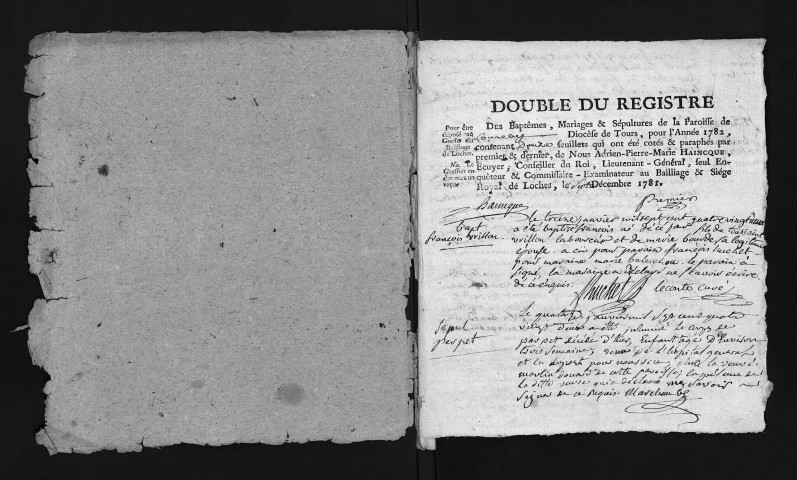 DOUBLE DU REGISTRE
DES Baptêmes, Mariages & Sépultures de la Paroisse de
Diocèse de Tours, pour l'Année 1782,
contenant Douze feuillets qui ont été cotés & paraphés par
premier & dernier, de Nous Adrien-Pierre-Marie HAINCQUE,
Ecuyer, Conseiller du Roi, Lieutenant-Général, seul En-
quêteur & Commissaire-Examinateur au Bailliage & Siége
Royal de Loches, le Décembre 1781.
Pour être
déposé au
Greffe du
Bailliage
de Loches.
Me. Le
Greffier en
Haincque
premier
bapt
françois vrillon
le treize janvier mil sept cent quatre vingt deux
a été baptisé françois né de ce jour fils de toussaint
vrillon laboureur et de marie sa légitime
épouse a eu pour parain françois huchet
pour maraine marie baluchou. le parain a
signé, la maraine a déclaré ne savoir écrire
de ce enquis.
f huchet
leconte curé
sepul
perpet
Le quatorze janvier mil sept cens quatre
vingt deux a été inhumé le corps de
perpet décédé d'hier, Enfant âgé d'Environ
trois semaines, de L'hopital general
chez la veuve
martin douard de cette paroisse en présence de
la ditte veuve qui a déclaré ne savoir
signer de ce requis